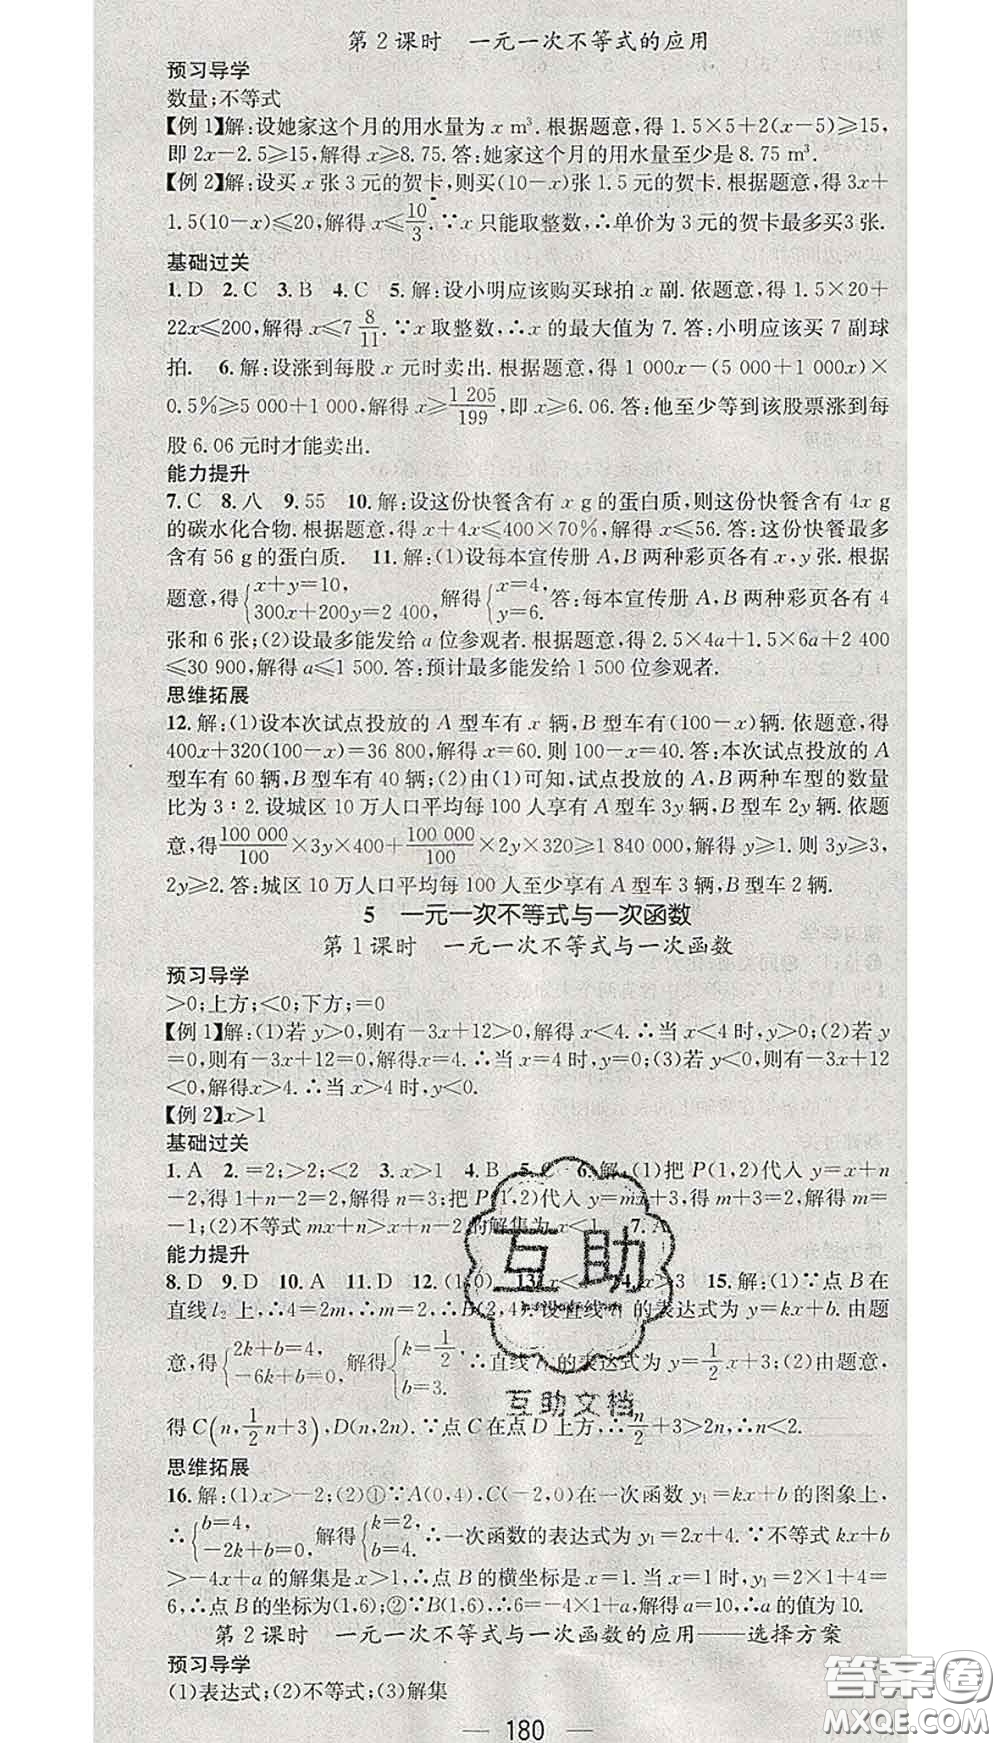 第2课时　一元一次不等式的应用
预习导学
数量;不等式
【例1】解:设她家这个月的用水量为 x m³. 根据题意,得 1.5×5+2(x-5)≥15,
即 2x-2.5≥15,解得 x≥8.75. 答:她家这个月的用水量至少是 8.75 m³.
【例2】解:设买 x 张 3 元的贺卡,则买(10-x)张 1.5 元的贺卡. 根据题意,得 3x+
1.5(10-x)≤20,解得 x≤10/3. ∵x 只能取整数,∴单价为 3 元的贺卡最多买3 张.
基础过关
1. D　2. C　3. B　4. C　5. 解:设小明应该购买球拍 x 副. 依题意,得 1.5×20+
22x≤200,解得 x≤7 8/11. ∵x 取整数,∴x 的最大值为 7. 答:小明应该买 7 副球
拍.　6. 解:设涨到每股 x 元时卖出. 根据题意,得 1 000x-(5 000+1 000x)×
0.5%≥5 000+1 000,解得 x≥1 205/199,即 x≥6.06. 答:他至少等到该股票涨到每
股 6.06 元时才能卖出.
能力提升
7. C　8. 八　9. 55　10. 解:设这份快餐含有 x g 的蛋白质,则这份快餐含有 4x g
的碳水化合物. 根据题意,得 x+4x≤400×70%,解得 x≤56. 答:这份快餐最多
含有 56 g 的蛋白质.　11. 解:(1)设每本宣传册 A,B 两种彩页各有 x,y 张. 根据
题意,得{x+y=10, 300x+200y=2 400, 解得{x=4, y=6. 答:每本宣传册 A,B 两种彩页各有 4
张和 6 张;(2)设最多能发给 a 位参观者. 根据题意,得 2.5×4a+1.5×6a+2 400
≤30 900,解得 a≤1 500. 答:预计最多能发给 1 500 位参观者.
思维拓展
12. 解:(1)设本次试点投放的 A 型车有 x 辆,B 型车有(100-x)辆. 依题意,得
400x+320(100-x)=36 800,解得 x=60. 则 100-x=40. 答:本次试点投放的 A
型车有 60 辆,B 型车有 40 辆;(2)由(1)可知,试点投放的 A,B 两种车型的数量
比为 3∶2. 设城区 10 万人口平均每 100 人享有 A 型车 3y 辆,B 型车 2y 辆. 依题
意,得 100 000/100×3y×400+100 000/100×2y×320≥1 840 000,解得 y≥1. 则 3y≥3,
2y≥2. 答:城区 10 万人口平均每 100 人至少享有 A 型车 3 辆,B 型车 2 辆.
5　一元一次不等式与一次函数
第1课时　一元一次不等式与一次函数
预习导学
>0;上方;<0;下方;=0
【例1】解:(1)若 y>0,则有-3x+12>0,解得 x<4. ∴当 x<4 时,y>0;(2)若 y
=0,则有-3x+12=0,解得x=4. ∴当 x=4 时,y=0;(3)若 y<0,则有-3x+12
<0,解得x>4. ∴当 x>4 时,y<0.
【例2】x>1
基础过关
1. A　2. =2;>2;<2　3. x>1　4. B　5. C　6. 解:(1)把 P(1,2)代入 y=x+n
-2,得 1+n-2=2,解得 n=3;把 P(1,2)代入 y=mx+3,得 m+3=2,解得 m=
-1;(2)不等式 mx+n>x+n-2 的解集为 x<1.　7. A
能力提升
8. D　9. D　10. A　11. D　12. (1,0)　13. x<　14. x>3　15. 解:(1)∵点 B 在
直线 l₂ 上,∴4=2m,∴m=2,∴B(2,4). 设直线 l₁ 的表达式为 y=kx+b. 由题
意,得{2k+b=4, -6k+b=0, 解得{k=1/2, b=3. ∴直线 l₁ 的表达式为 y=1/2x+3;(2)由题意,
得 C(n,1/2n+3),D(n,2n). ∵点 C 在点 D 上方,∴n/2+3>2n,∴n<2.
思维拓展
16. 解:(1)x>-2;(2)①∵A(0,4),C(-2,0)在一次函数 y₁=kx+b 的图象上,
∴{b=4, -2k+b=0, 解得{k=2, b=4. ∴一次函数的表达式为 y₁=2x+4. ∵不等式 kx+b
>-4x+a 的解集是 x>1,∴点 B 的横坐标是 x=1. 当 x=1 时,y₁=2×1+4=
6,∴点 B 的坐标为(1,6);②∵B(1,6),∴6=-4×1+a,解得 a=10,∴a 的值为 10.
第2课时　一元一次不等式与一次函数的应用——选择方案
预习导学
(1)表达式;(2)不等式;(3)解集
— 180 —
互助
互助文档
答案圈
MXQE.COM